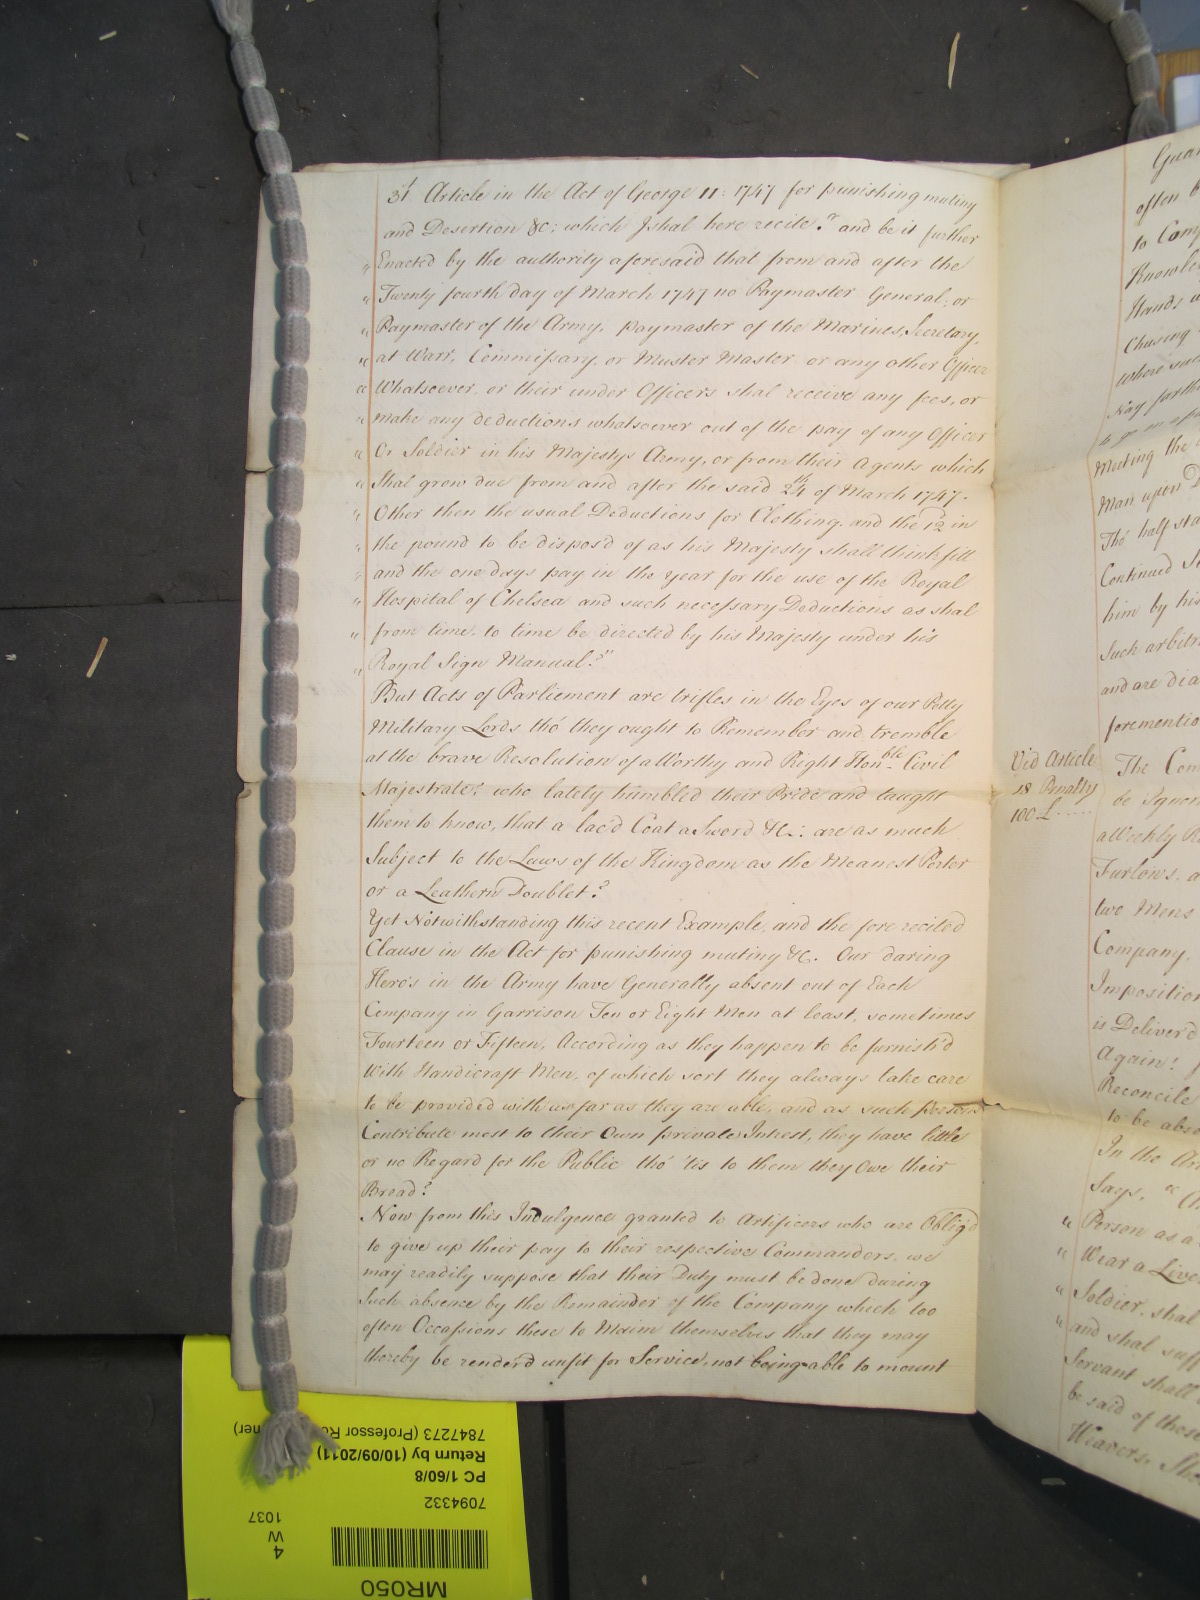 3d Article in the Act of George II: 1747 for punishing mutiny
and Desertion &c: which I shal here recite? and be it further
" Enacted by the authority aforesaid that from and after the
" Twenty fourth day of March 1747 no Paymaster General, or
" Paymaster of the Army, paymaster of the Marines, Secretary
" at Warr, Commissary, or Muster Master or any other Officer
" Whatsoever, or their under Officers shal receive any fees, or
" make any deductions whatsoever out of the pay of any Officer
" Or Soldier in his Majestys Army, or from their Agents which
" Shal grow due from and after the said 24th of March 1747.
" Other then the usual Deductions for Clothing and the 12d in
" the pound to be dispos'd of as his Majesty shall think fitt
" and the one days pay in the year for the use of the Royal
" Hospital of Chelsea and such necessary Deductions as shal
" from time to time be directed by his Majesty under his
" Royal Sign Manual?"
But Acts of Parliement are trifles in the Eyes of our Petty
Military Lords tho' they ought to Remember and tremble
at the brave Resolution of a Worthy and Right Honble Civil
Majestrate? who lately humbled their Pride and taught
them to know, that a lac'd Coat a Sword &c: are as much
Subject to the Laws of the Kingdom as the Meanest Porter
or a Leathern Doublet?
Yet Notwithstanding this recent Example, and the fore recited
Clause in the Act for punishing mutiny &c. Our daring
Hero's in the Army have Generally absent out of Each
Company in Garrison Ten or Eight Men at least, sometimes
Fourteen or Fifteen, According as they happen to be furnish'd
With Handicraft Men, of which sort they always take care
to be provided with as far as they are able, and as such persons
Contribute most to their Own private Intrest, they have little
or no Regard for the Public tho' 'tis to them they Owe their
Bread?
Now from this Indulgence granted to Artificers who are Oblig'd
to give up their pay to their respective Commanders, we
may readily suppose that their Duty must be done during
Such absence by the Remainder of the Company which too
often Occasions these to Maim themselves that they may
thereby be render'd unfit for Service, not being able to mount
often
to Com
Hands
Chusing
where
Nay farthe
Muting the
Man upon D
The half sta
Continued
him by his
Such arbitr
and are dia
forementio
Vid Article
18 Penalty
100 £
The Com
be Ignor
a Weekly
Furlows. a
two Mens
Company.
Imposition
is Deliver'd
Again!
Reconcile
to be abs
In the Ar
Says, "
" Person as a
" Wear a Live
" Soldier, shal
" and shal suff
Servant shall
be said of those
Weavers,
MR050
4
W
1037
7094332
PC 1/60/8
Return by (10/09/2011)
7847273 (Professor Ro ner)